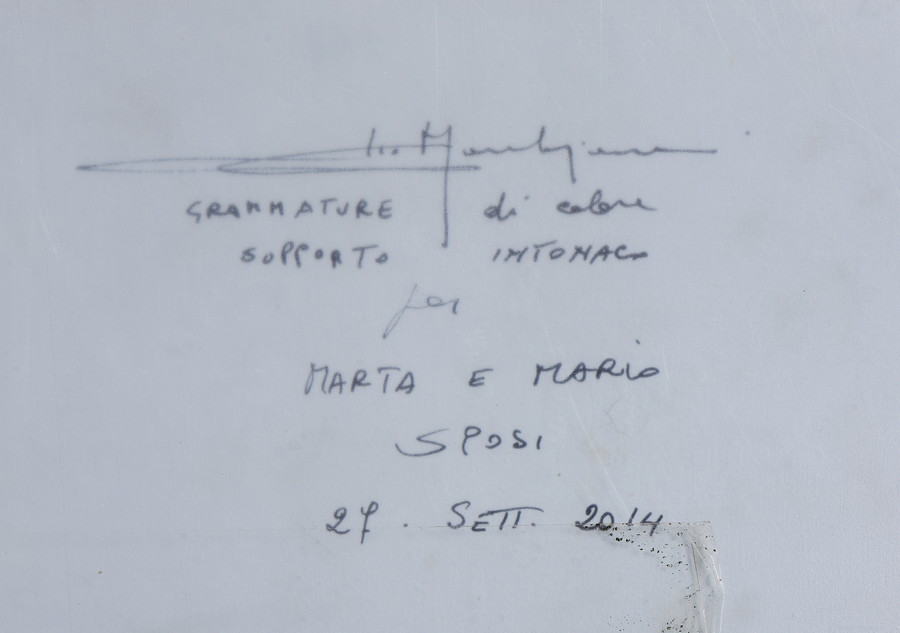 GRAMMATURE di colore
SUPPORTO INTONACO
per
MARTA E MARIO
SPOSI
27. SETT. 2014